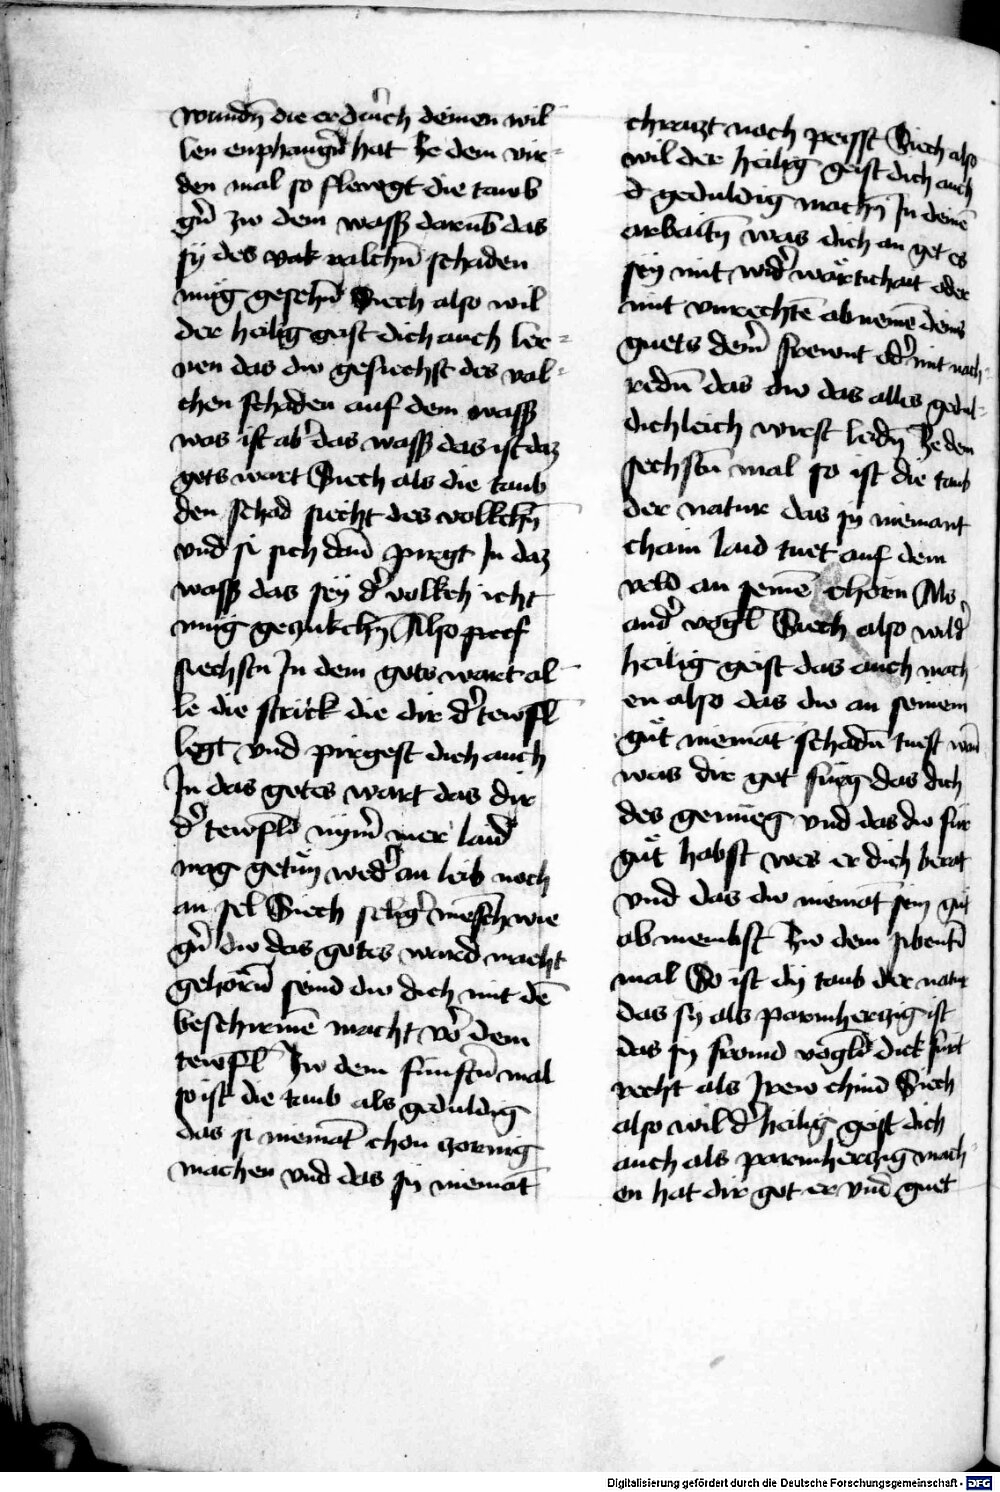 wundn̄ die er durch deinen wil
len enphangn̄ hat Ze dem vir-
den mal so flewgt die tawb
gern̄ zw dem wasß darub̄ das
sy des vak valchn̄ schaden
müg gesehn̄ Siech also wil
der heilig geist dich auch ler-
nen das dw gesiechst des val-
chen schaden auf dem wasß
was ist ab' das wasß das ist daz
gots wart Siech als die taub
den schad siecht des volkchn̄
vnd si sich dan̄ pirgt In daz
wasß das sey d' volkch icht
müg gezukchn̄ Also
siechstu In dem gots wart al-
le die strick die dir d' tewfl̄
legt vnd pirgest dich auch
In das gotes wart das dir
d' tewfl̄ nym̄' mer laid
mag getün wed' an leib noch
an sel Siech selig' mensch wie
gern̄ dw das gotes ward macht
gehorn̄ seind dw dich mit dē
beschirmē macht vo' dem
tewfl̄ Zw dem funftn̄ mal
so ist die taub als geduldig
das si niemat̄ chon zornig
machen vnd das sy niemat̄
chrazt noch peysst Siech also
wil der heilig geist dich auch
d geduldig machn̄ In deinē
arbaitn̄ was dich an get es
sey mit wid'wärtichait oder
mit vnrechtē ab nemē deins
guets dem' frewnt od' mit nach-
redn̄ das dw das alles gedul-
dichleich wirst leidn̄ Ze dem
sechstn̄ mal so ist die taub
der natur das sy niemant
chain laid tuet auf dem
veld an seinē chorn Als
and' vogl̄ Siech also wil d'
heilig geist das auch mach
en also das dw an seinem
gůt niemat̄ schadn̄ tuest wan̄
was dir got füeg das dich
des genueg vnd das dw für
gůt habst wes er dich berat
vnd das dw niemat̄ sein gut
ab nembst Zw dem sibentn̄
mal So ist dy taub der natur
das sy als parmherczig ist
das sy fromd vogl̄ dick fürt
recht als Irew chind Siech
also wil d' heilig geist dich
auch als parmherczig mach-
en hat dir got er vnd guet
Digitalisierung gefördert durch die Deutsche Forschungsgemeinschaft - DFG